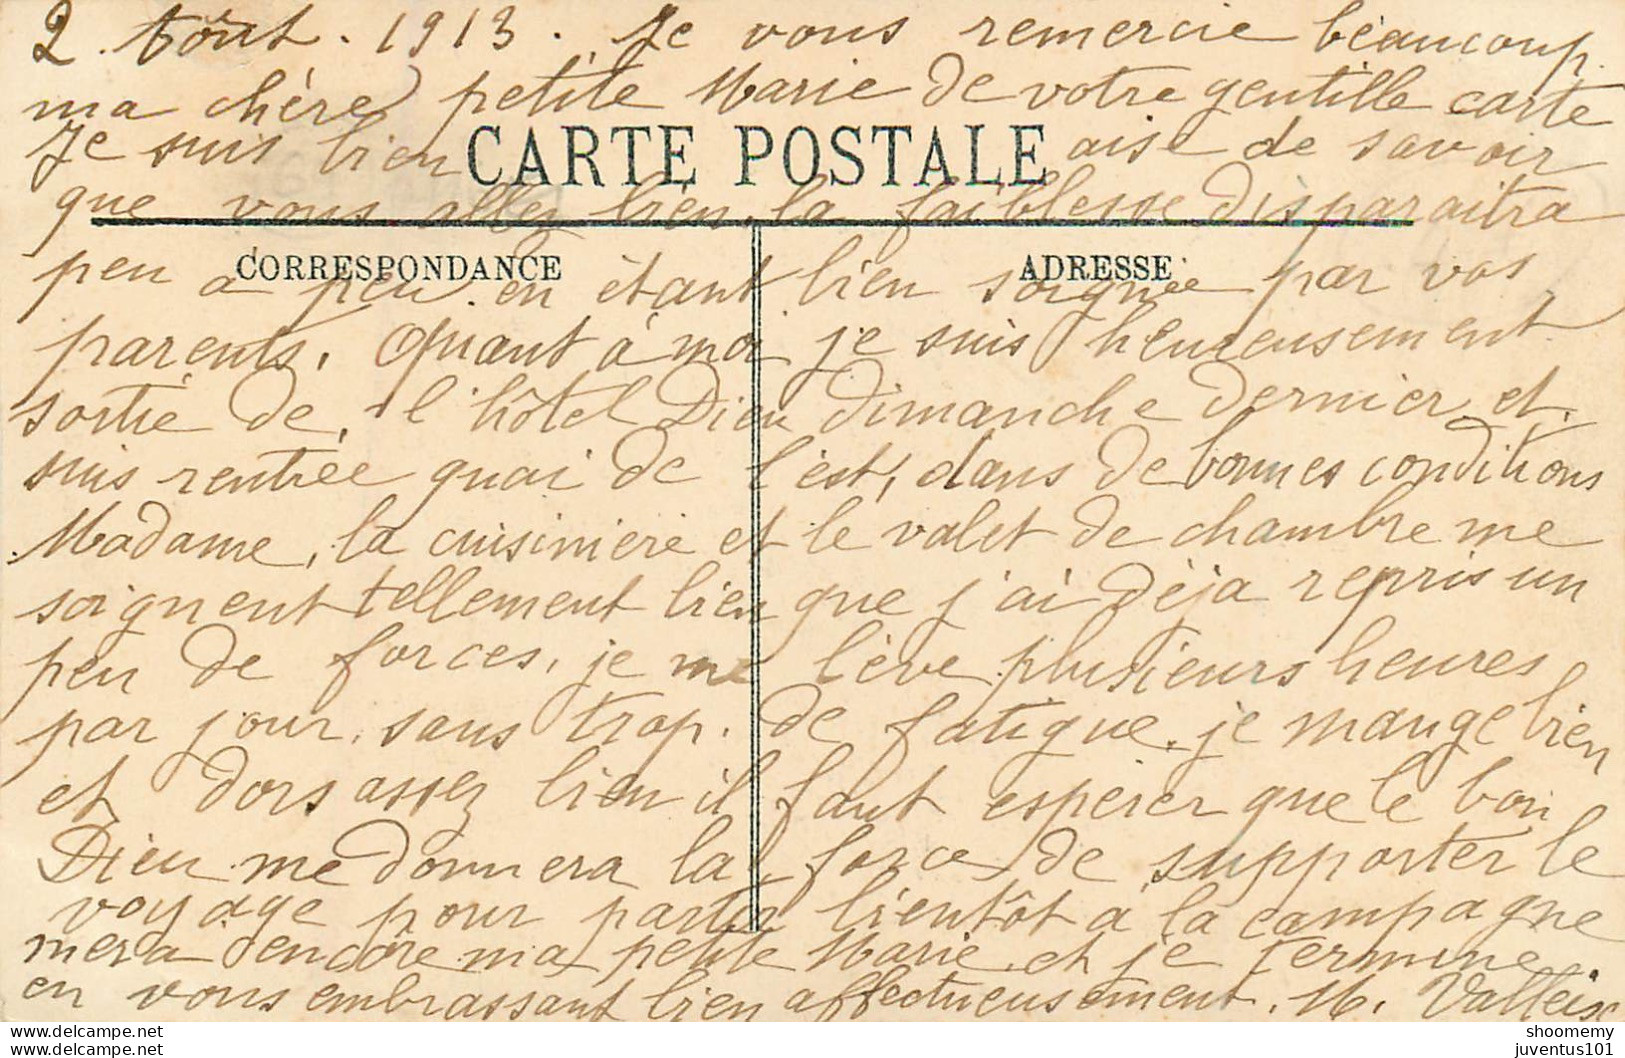 2 Août. 1913. Je vous remercie béaucoup
ma chère petite Marie de votre gentille carte
Je suis bien aise de savoir
CARTE POSTALE
que vous allez bien, la faiblesse disparaitra
CORRESPONDANCE
ADRESSE
peu à peu en étant bien soignée par vos
parents. Quant à moi je suis heureusement
sortie de l'hôtel Dieu dimanche dernier et
suis rentrée quai de l'est, dans de bonnes conditions
Madame, la cuisinière et le valet de chambre me
soignent tellement bien que j'ai déja repris un
peu de forces, je me lève plusieurs heures
par jour, sans trop de fatigue. je mange bien
et dors assez bien il faut espérer que le bon
Dieu me donnera la force de supporter le
voyage pour partir bientôt à la campagne
merci encore ma petite Marie et je termine
en vous embrassant bien affectueusement. M. Valleix
www.delcampe.net
www.delcampe.net
shoomemy
juventus101